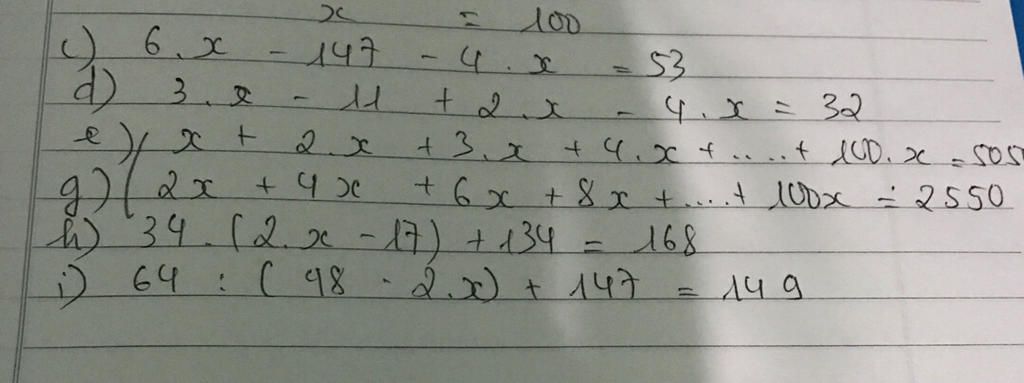 x = 100
c) 6.x - 147 - 4.x = 53
d) 3.x - 11 + 2.x - 4.x = 32
e) x + 2.x + 3.x + 4.x + ..... + 100.x = 505
g) ( 2x + 4x + 6x + 8x + .... + 100x = 2550
h) 34.(2.x - 17) + 134 = 168
i) 64 : (98 - 2.x) + 147 = 149